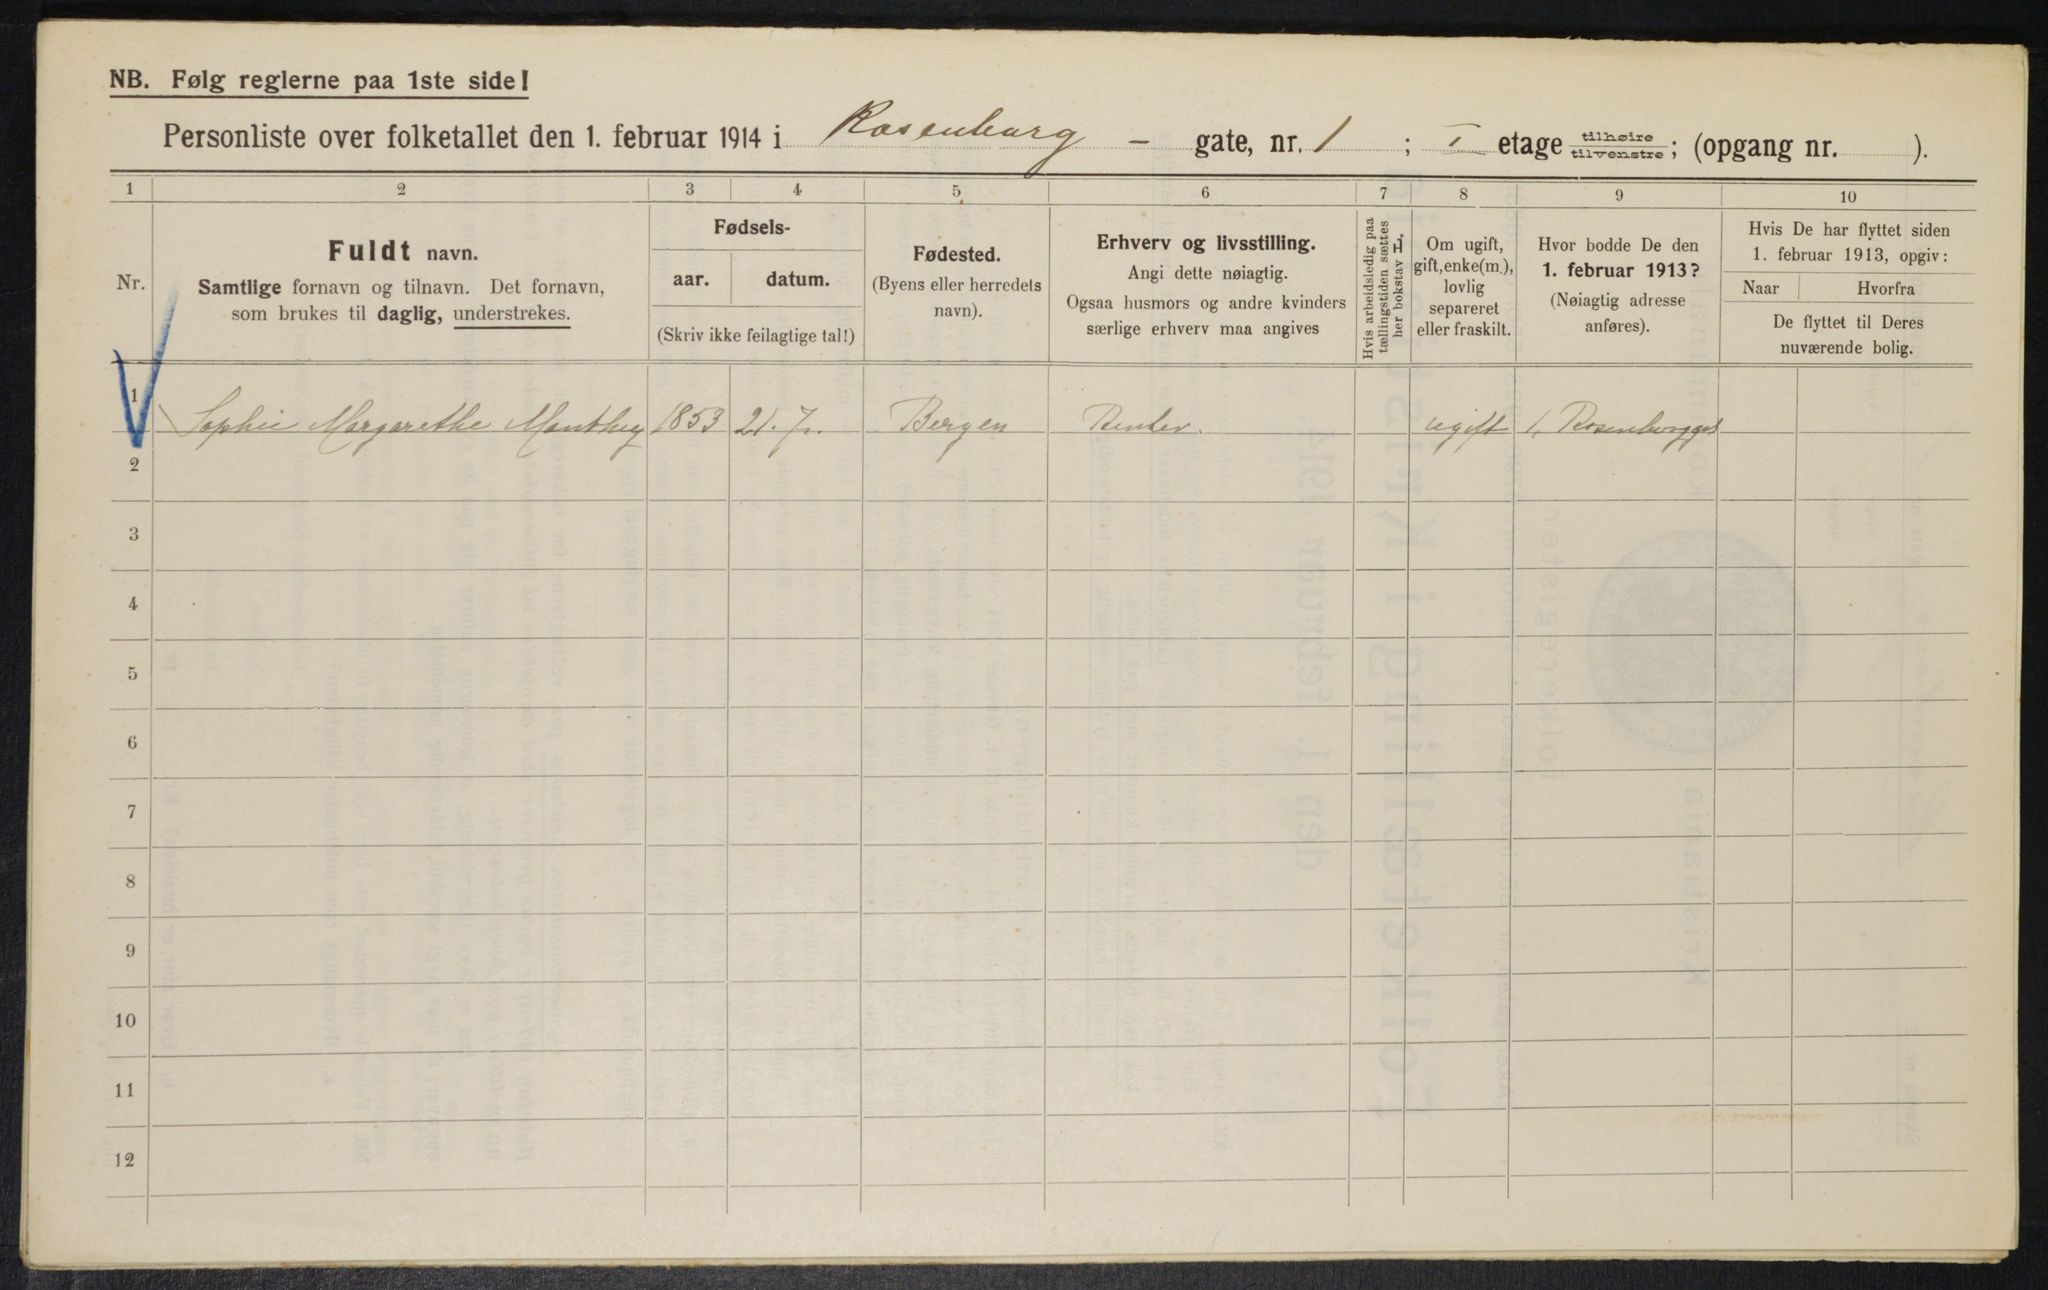 NB. Følg reglerne paa 1ste side!
Personliste over folketallet den 1. februar 1914 i Rosenborg - gate, nr. 1 ; I etage tilhøire tilvenstre; (opgang nr. ).
1 2 3 4 5 6 7 8 9 10
Nr.
Fuldt navn.
Samtlige fornavn og tilnavn. Det fornavn,
som brukes til daglig, understrekes.
Fødsels-
aar. datum.
(Skriv ikke feilagtige tal!)
Fødested.
(Byens eller herredets
navn).
Erhverv og livsstilling.
Angi dette nøiagtig.
Ogsaa husmors og andre kvinders
særlige erhverv maa angives
Hvis arbeidsledig paa
tællingstiden sættes
her bokstav H,
Om ugift,
gift, enke(m.),
lovlig
separeret
eller fraskilt.
Hvor bodde De den
1. februar 1913?
(Nøiagtig adresse
anføres).
Hvis De har flyttet siden
1. februar 1913, opgiv:
Naar Hvorfra
De flyttet til Deres
nuværende bolig.
1 Sophie Margarethe Manthey 1853 21.7. Bergen Renter. ugift 1, Rosenborggt
2
3
4
5
6
7
8
9
10
11
12